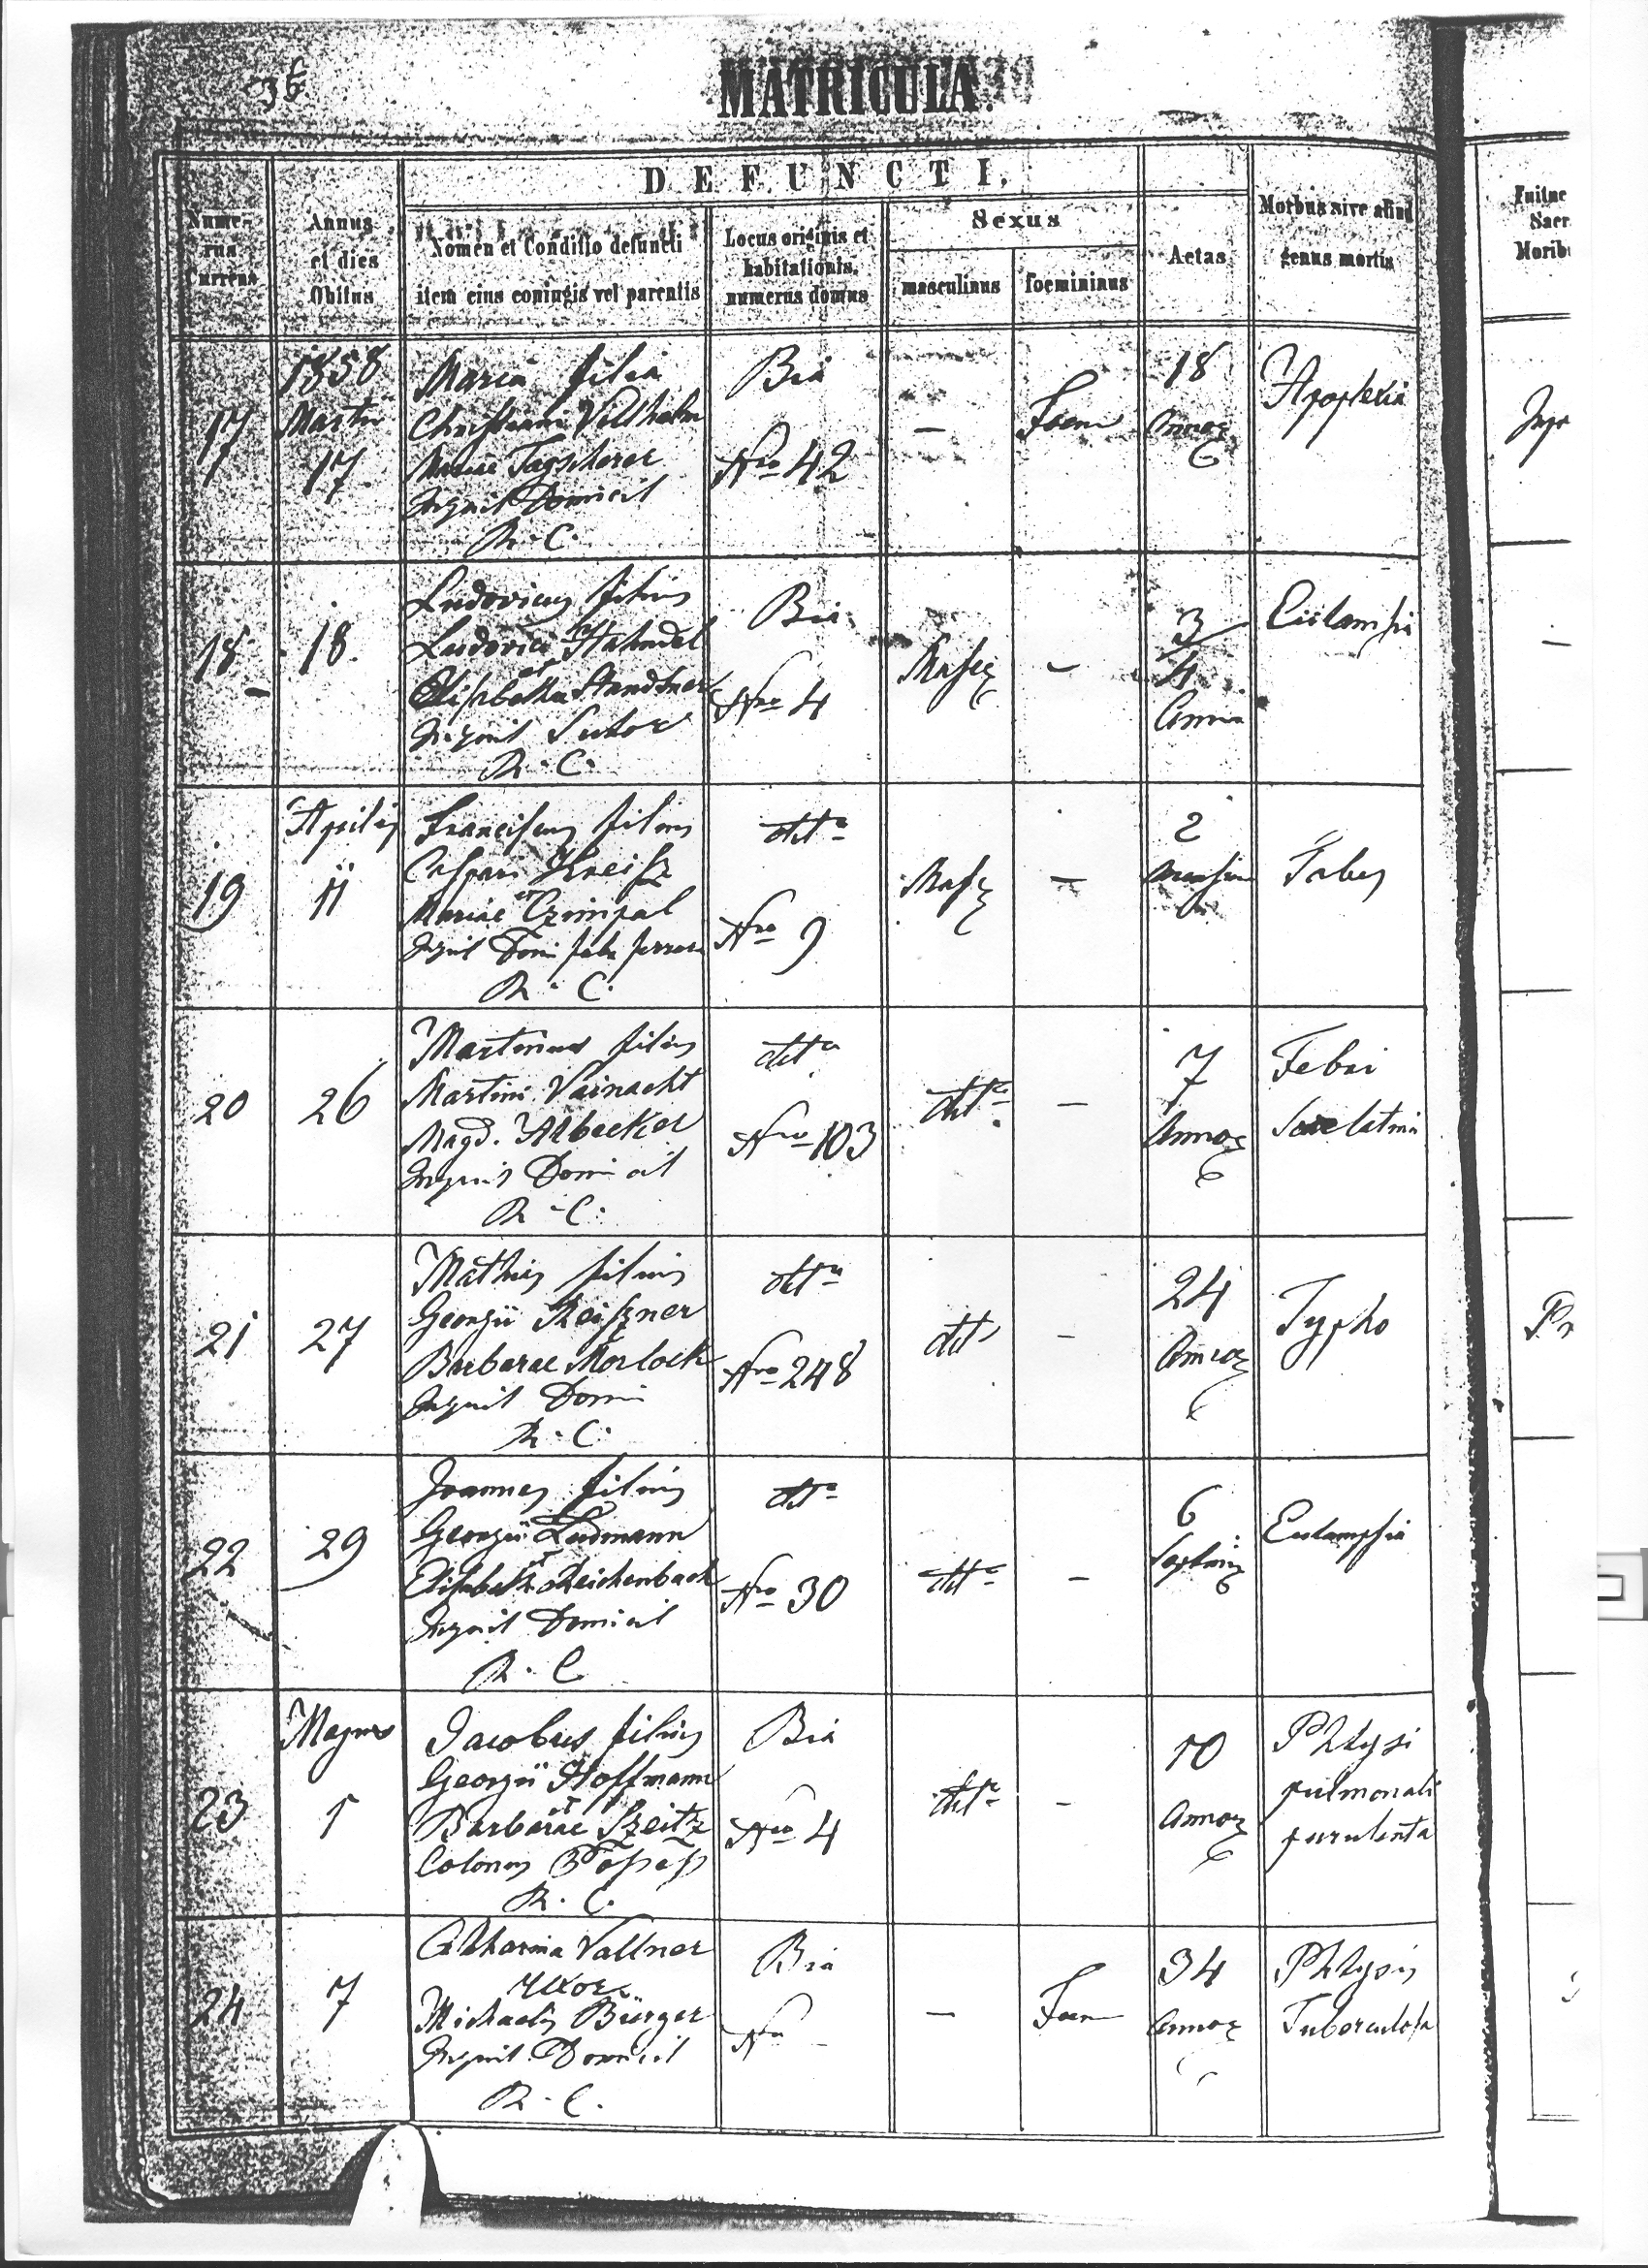 36.
MATRICULA.
DEFUNCTI.
Nume-
rus
Currens
Annus
et dies
Obitus
Nomen et Conditio defuncti
item eius coniugis vel parentis
Locus originis et
habitationis,
numerus domus
Sexus
masculinus
foemininus
Aetas
Morbus sive aliud
genus mortis
17
1858
Martii
17
Maria filia
Christiani Villhelm
Mariae Tagscherer
Inquil Domicil
R. C.
Bia
Nro 42
-
Foem
18
Annor
Apoplexia
18
18.
Ludovicus filius
Ludovici Hahndel
et
Elisabetha Standtner
Inquil Sutor
R. C.
Bia
Nro 4
Masc
-
3/4
Anni
Ecclampsi
19
Aprilis
11
Franciscus filius
Caspari Kneisz
et
Mariae Czimpal
Inquil Domi fabr ferrari
R. C.
dtto
Nro 9
Masc
-
2
mensium
Tabes
20
26
Martinus filius
Martini Vainacht
Magd. Albecker
Inquil Domicil
R. C.
dtto
Nro 103
dtto
-
7
Annor
Febri
Scarlatina
21
27
Mathias filius
Georgii Reiszner
Barbarae Morlock
Inquil Domi
R. C.
dtto
Nro 248
dtto
-
24
Annor
Typho
22
29
Joannes filius
Georgii Ludmann
et
Elisabeth Reichenbach
Inquil Domicil
R. C
dtto
Nro 30
dtto
-
6
Septim
Eclampsia
23
Majus
1
Jacobus filius
Georgii Hoffmann
et
Barbarae Szeitz
Colonus
R. C.
Bia
Nro 4
dtto
-
10
Annor
Phtysi
pulmonali
purulenta
24
7
Catharina Vallner
uxor
Michaelis Bürger
Inquil Domicil
R. C.
Bia
Nro -
-
Foem
34
Annor
Phtysis
Tuberculosa